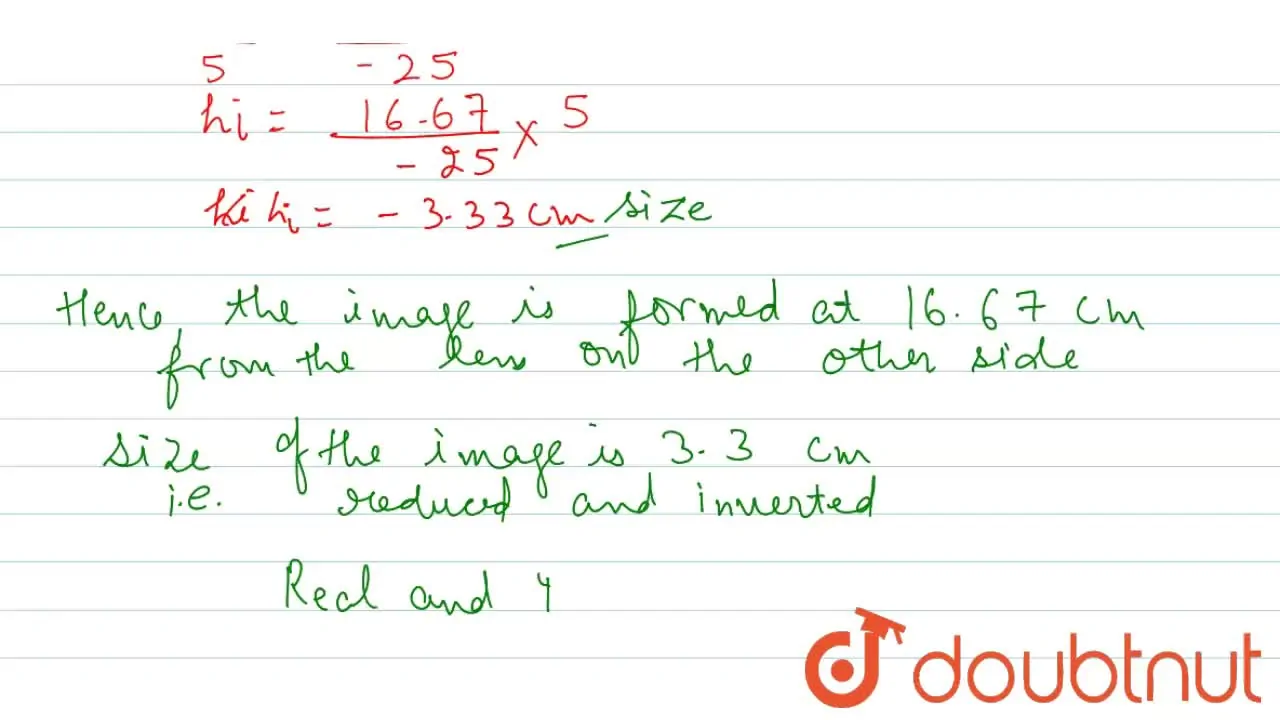 5 - 25
hi = 16.67 × 5
- 25
hi = - 3.33 cm size
Hence, the image is formed at 16.67 cm
from the lens on the other side
size of the image is 3.3 cm
i.e. reduced and inverted
Real and
doubtnut